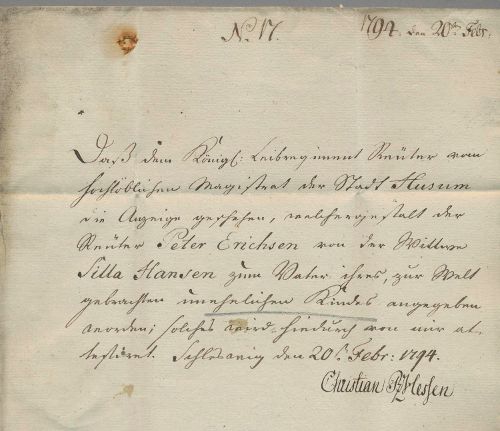 No. 17.
1794. den 20ten Febr.
Daß dem Königl: Leibregiment Reüter vom
hochlöblichen Magistrat der Stadt Husum
die Anzeige geschehen, welchergestalt der
Reüter Peter Erichsen von der Wittwe
Silla Hansen zum Vater ihres, zur Welt
gebrachten unehelichen Kindes angegeben
worden; solches wird hiedurch von mir at-
testiret. Schleswig den 20t. Febr: 1794.
Christian PzHessen